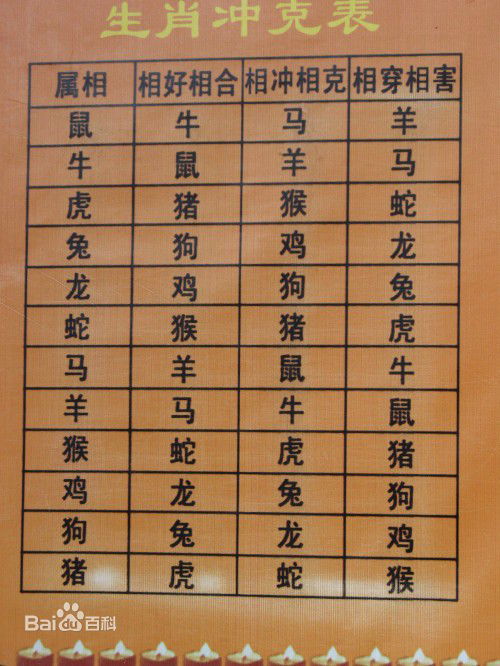 生肖冲克表
属相 相好相合 相冲相克 相穿相害
鼠 牛 马 羊
牛 鼠 羊 马
虎 猪 猴 蛇
兔 狗 鸡 龙
龙 鸡 狗 兔
蛇 猴 猪 虎
马 羊 鼠 牛
羊 马 牛 鼠
猴 蛇 虎 猪
鸡 龙 兔 狗
狗 兔 龙 鸡
猪 虎 蛇 猴
Bai du 百科